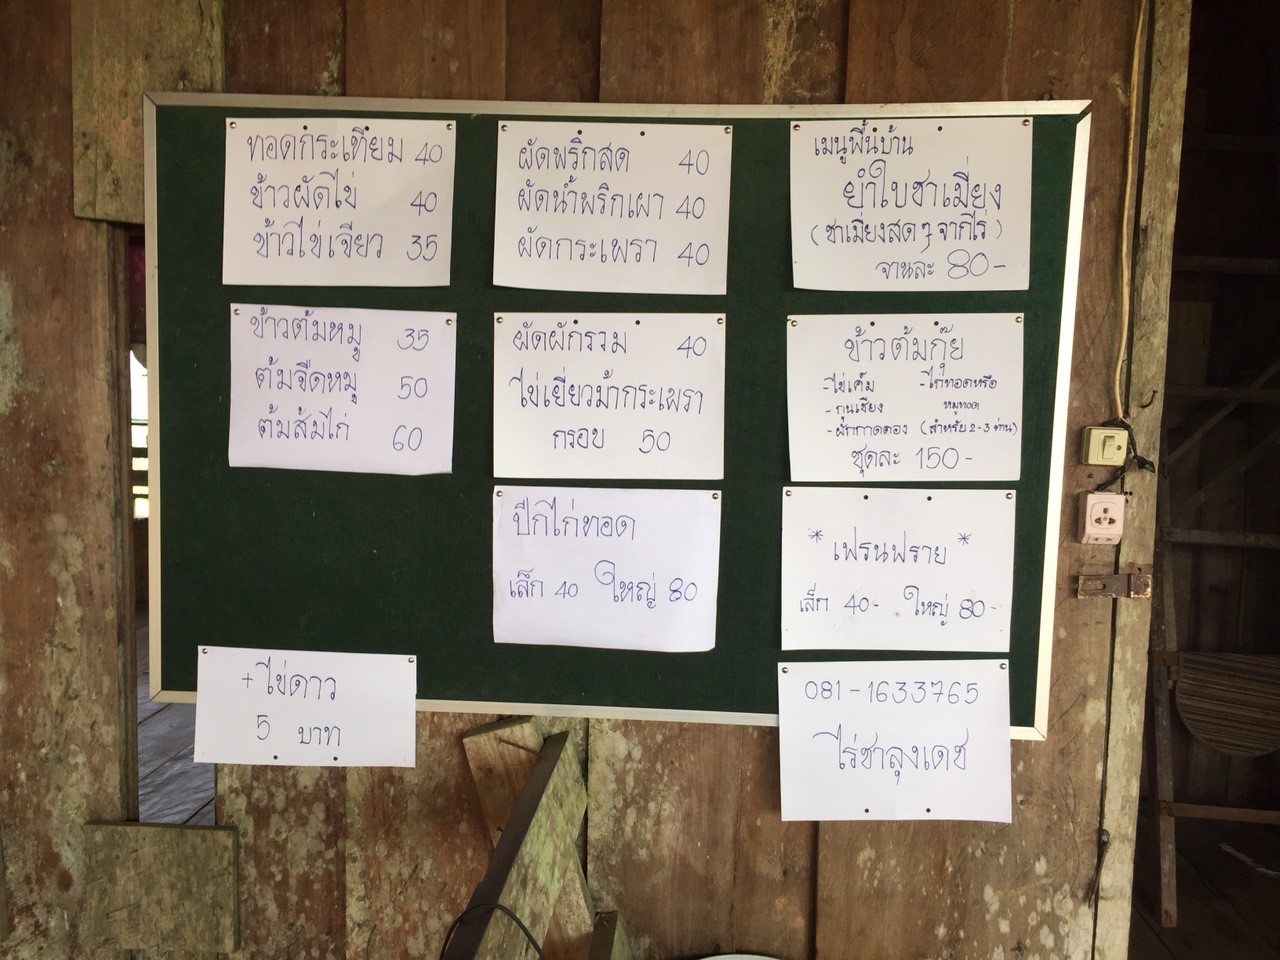 ทอดกระเทียม 40
ข้าวผัดไข่ 40
ข้าวไข่เจียว 35
ผัดพริกสด 40
ผัดน้ำพริกเผา 40
ผัดกระเพรา 40
เมนูพื้นบ้าน
ยำใบชาเมี่ยง
(ชาเมี่ยงสดๆ จากไร่)
จานละ 80-
ข้าวต้มหมู 35
ต้มจืดหมู 50
ต้มส้มไก่ 60
ผัดผักรวม 40
ไข่เยี่ยวม้ากระเพรา
กรอบ 50
ข้าวต้มกุ๊ย
-ไข่เค็ม -ไก่ทอดหรือ
-กุนเชียง หมูทอด
-ผักกาดดอง (สำหรับ 2-3 ท่าน)
ชุดละ 150-
ปีกไก่ทอด
เล็ก 40 ใหญ่ 80
* เฟรนฟราย *
เล็ก 40- ใหญ่ 80-
+ไข่ดาว
5 บาท
081-1633765
ไร่ชาลุงเดช